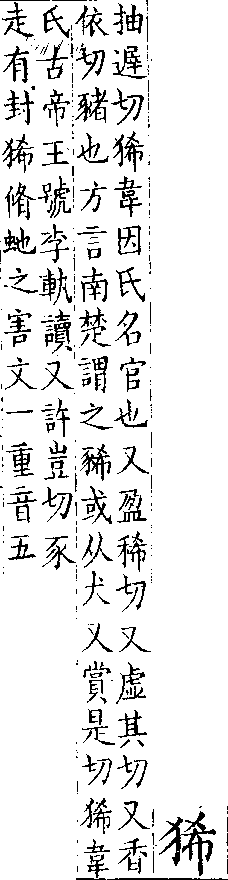 狶
抽遲切狶韋因氏名官也又盈稀切又虛其切又香
依切豬也方言南楚謂之豨或从犬又賞是切狶韋
氏古帝王號李軌讀又許豈切豕
走有封狶脩虵之害文一重音五